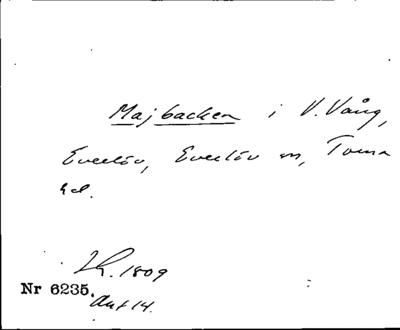 Majbacken i V. Vång,
Everlöv, Everlöv sn, Torna
hd.
Lk. 1809
Nr 6235.
Aut 14.